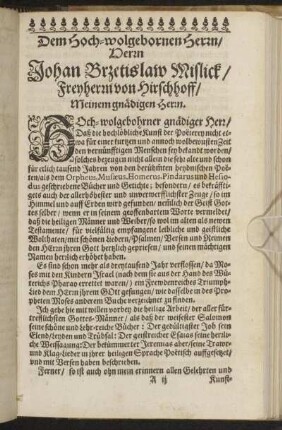 Dem Hoch-wolgebornen Herrn/
Herrn
Johan Brzetislaw Mislick/
Freyherrn von Hirschhoff/
Meinem gnädigen Herrn.
HOch-wolgebohrner gnädiger Herr/
Daß die hochlöbliche Kunst der Poëterey nicht et-
wa für einer kurtzen und annoch wolbewusten Zeit
den vernünfftigen Menschen sey bekandt worden/
solches bezeugen nicht allein die sehr alte und schon
für etlich tausend Jahren von den berühmten heydnischen Poë-
ten/als dem Orpheus, Musæus, Homerus, Pindarus und Hesio-
dus geschriebene Bücher und Getichte; besondern/ es bekräffti-
gets auch der allerhöhester und unverwerfflichster Zeuge/ so im
Himmel und auff Erden wird gefunden/ nemlich der Geist Got-
tes selber/ wenn er in seinem geoffenbahrtem Worte vermeldet/
daß die heiligen Männer und Weiber/so wol im alten als newen
Testamente/ für vielfältig empfangene leibliche und geistliche
Wolthaten/mit schönen Liedern/Psalmen/Versen und Reimen
den HErrn jhren Gott hertzlich gepriesen/ und seinen mächtigen
Namen herrlich erhöhet haben.
Es sind schon mehr als dreytausend Jahr verflossen/ da Mo-
ses mit den Kindern Israel (nach dem sie aus der Hand des Wü-
terichs Pharao errettet waren/) ein frewdenreiches Triumph-
Lied dem HErrn jhrem GOtt gesungen/ wie dasselbe in des Pro-
pheten Moses anderem Buche verzeichnet zu finden.
Ich gehe hie mit willen vorbey die heilige Arbeit/ der aller für-
trefflichsten Gottes-Männer/ als daß der weisester Salomon
seine schöne und lehr-reiche Bücher: Der gedültigster Job sein
Elend/ leyden und Trübsal: Der geistreicher Esaias seine herrli-
che Weissagung: Der bekümmerter Jeremias aber/seine Trawr-
und Klag-lieder in jhrer heiligen Sprache Poëtisch auffgesetzet/
und mit Versen haben beschrieben.
Ferner/ so ist auch ohn mein erinnern allen Gelehrten und
A ij Kunst-